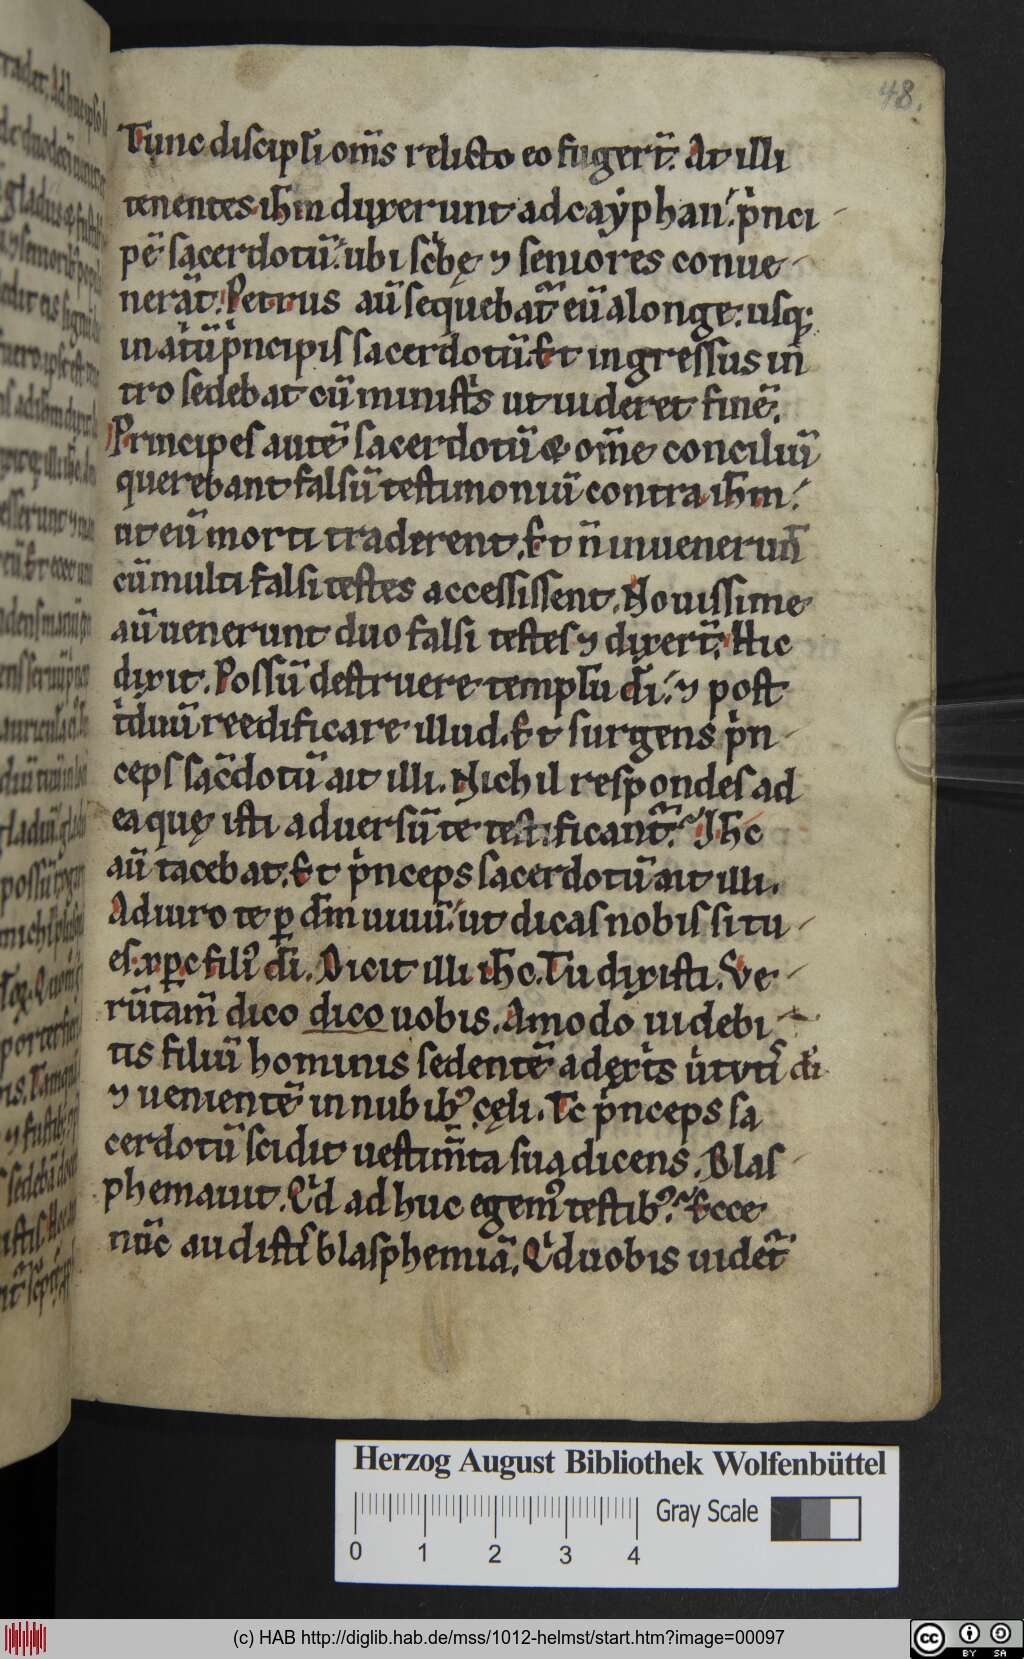 48.
Tunc discipłi om̅s relicto eo fuger̅t. At illi
tenentes ih̅m duxerunt ad cayphan̅. p̍nci
pe̅ sacerdotu̅. ubi sc̍bę ⁊ seniores conue
nera̅t. Petrus au̅ sequebat᷑ eu̅ a longe. usq;
in at̍u̅ p̍ncipis sacerdotu̅. Et ingressus in
tro sedebat cu̅ minist̍s ut uideret fine̅.
Principes aute̅ sacerdotu̅ & om̅e conciliu̅
querebant falsu̅ testimoniu̅ contra ih̅m.
ut eu̅ morti traderent. Et n̅ inuenerun̅t
cu̅ multi falsi testes accessissent. Nouissime
au̅ uenerunt duo falsi testes ⁊ dixer̅t. Hic
dixit. Possu̅ destruere templ̅u d̅i. ⁊ post
t̍duu̅ reedificare illud. Et surgens p̍n
ceps sac̅dotu̅ ait illi. Nichil respondes ad
ea quę isti aduersu̅ te testificant᷑. Ih̅c
au̅ tacebat. Et p̍nceps sacerdotu̅ ait illi.
Adiuro te ꝑ d̅m uiuu̅. ut dicas nobis si tu
es xp̅c filiꝰ d̅i. Dicit illi ih̅c. Tu dixisti. Ve
ru̅tam̅ dico dico uobis. Amodo uidebi
tis filiu̅ hominis sedente̅ a dext̍s ui̍tuti̅s d̅i
⁊ ueniente̅ in nubibꝰ cęli. Tc̅ p̍nceps sa
cerdotu̅ scidit uestim̅ta sua dicens. Blas
phemauit. Qͥd adhuc egemꝰ testibꝰ. Ecce
nu̅c audisti̅s blasphemia̅. Qͥd uobis uidet᷑
Herzog August Bibliothek Wolfenbüttel
Gray Scale
0 1 2 3 4
(c) HAB http://diglib.hab.de/mss/1012-helmst/start.htm?image=00097
cc BY SA